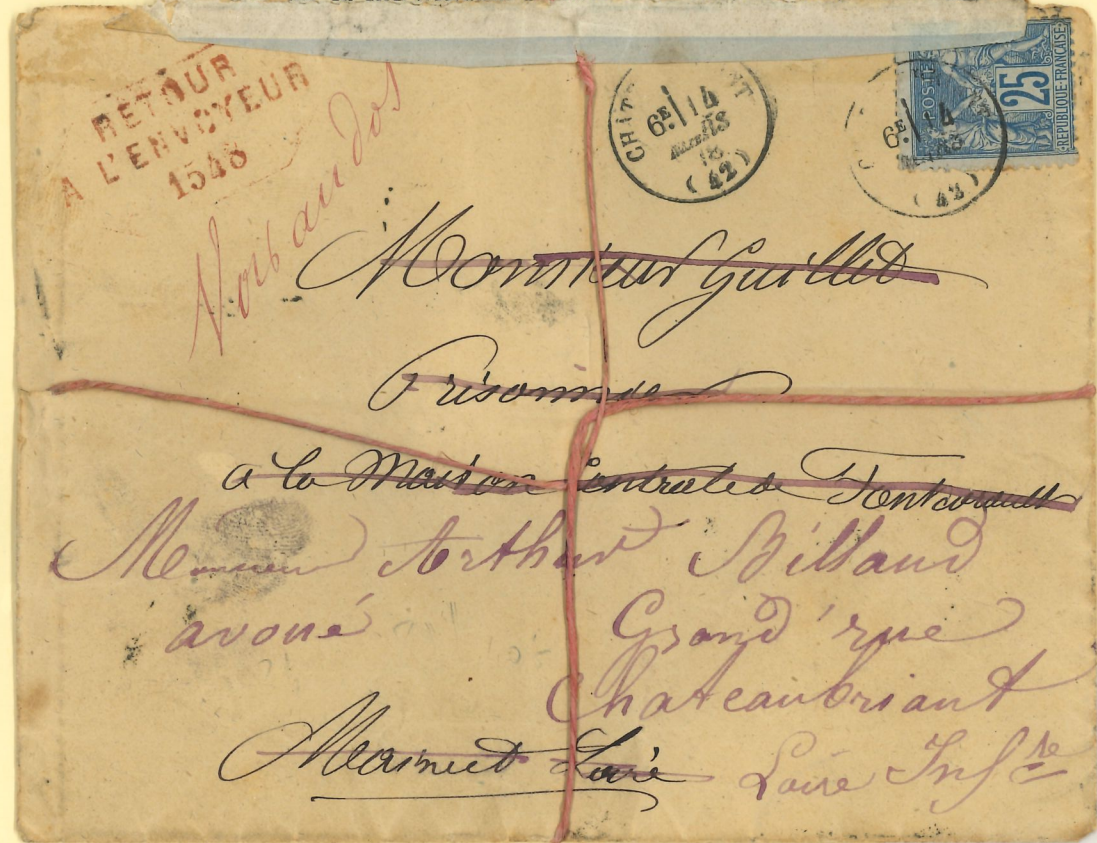 RETOUR
A L'ENVOYEUR
1548
Voir au dos
6E 14
MARS
(42)
6E 14
MARS
(42)
POSTES
25
REPUBLIQUE FRANÇAISE
Monsieur Guillet
Prisonnier
a la Maison Centrale de Fontevrault
Monsieur Arthur Billaud
avoué Grand'rue
Chateaubriant
Maine et Loire
Loire Infre